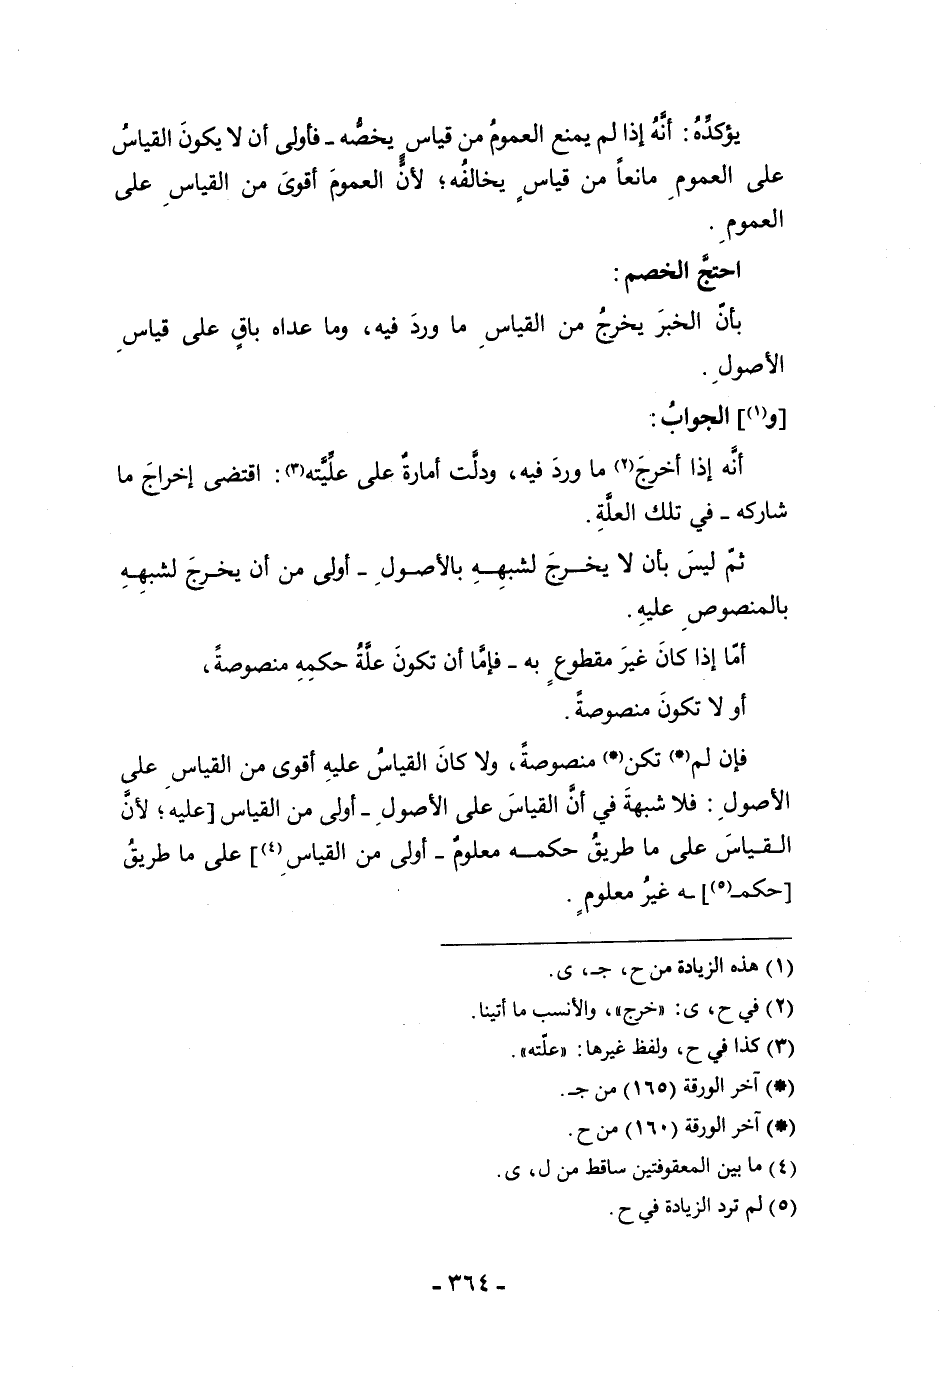 يؤكدِّهُ: أنَّهُ إذا لم يمنع العمومُ من قياسٍ يخصُّه ـ فأولى أن لا يكونَ القياسُ
على العمومِ مانعاً من قياسٍ يخالفُه؛ لأنَّ العمومَ أقوىَ من القياسِ على
العمومِ.
احتجَّ الخصم:
بأنّ الخبرَ يخرجُ من القياسِ ما وردَ فيه، وما عداه باقٍ على قياسِ
الأصولِ.
[و(١)] الجوابُ:
أنَّه إذا أخرجَ(٢) ما وردَ فيه، ودلَّت أمارةٌ على علِّيَّته(٣): اقتضى إخراجَ ما
شاركه ـ في تلك العلَّةِ.
ثمّ ليسَ بأن لا يخـرجَ لشبهِـهِ بالأصـولِ ـ أولى من أن يخـرجَ لشبهِـهِ
بالمنصوصِ عليهِ.
أمّا إذا كانَ غيرَ مقطوعٍ به ـ فإمَّا أن تكونَ علَّةُ حكمِهِ منصوصةً،
أو لا تكونَ منصوصةً.
فإن لم(*) تكن(*) منصوصةً، ولا كانَ القياسُ عليهِ أقوى من القياسِ على
الأصولِ: فلا شبهةَ في أنَّ القياسَ على الأصولِ ـ أولى من القياس [عليه؛ لأنَّ
القـيـاسَ على ما طريقُ حكمـه معلومٌ ـ أولى من القياسِ(٤)] على ما طريقُ
[حكمـ(٥)] ـه غيرُ معلومٍ.
(١) هذه الزيادة من ح، جـ، ى.
(٢) في ح، ى: «خرج»، والأنسب ما أتينا.
(٣) كذا في ح، ولفظ غيرها: «علّته».
(*) آخر الورقة (١٦٥) من جـ.
(*) آخر الورقة (١٦٠) من ح.
(٤) ما بين المعقوفتين ساقط من ل، ى.
(٥) لم ترد الزيادة في ح.
ـ ٣٦٤ ـ